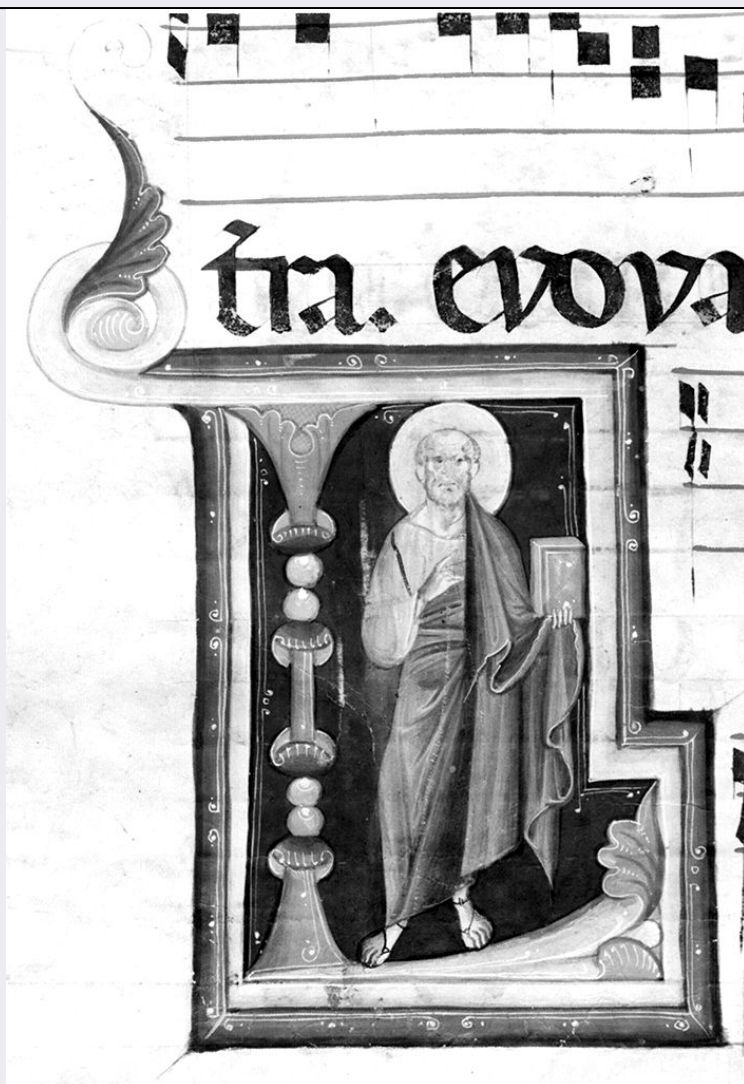 t̄ra. evova
L